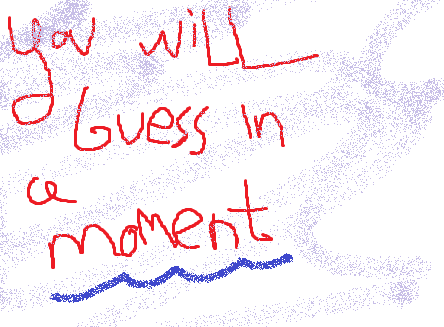 you will
Guess in
a
moment